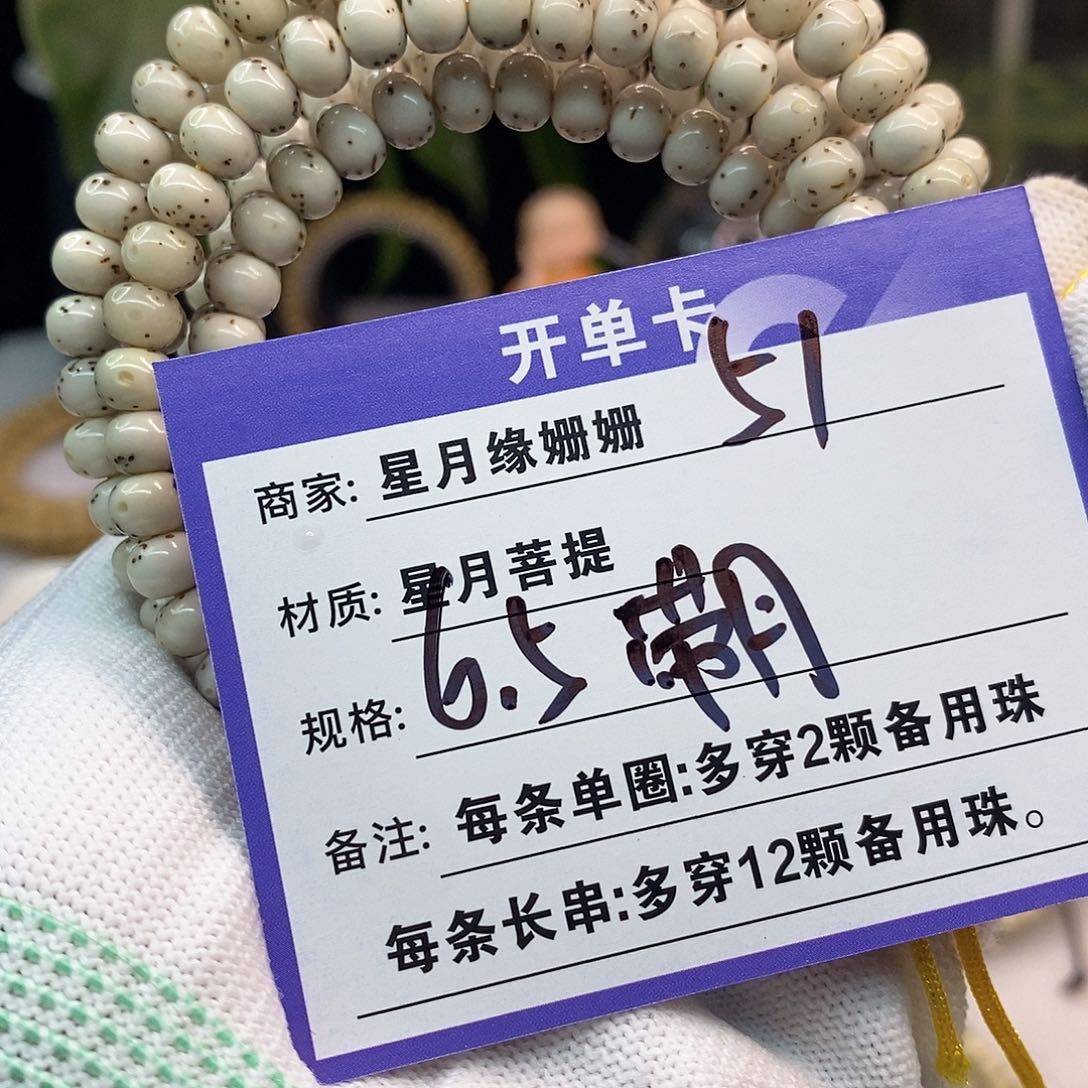 开单卡
51
商家: 星月缘姗姗
材质: 星月菩提
规格: 6.5 带月
备注: 每条单圈:多穿2颗备用珠
每条长串:多穿12颗备用珠。